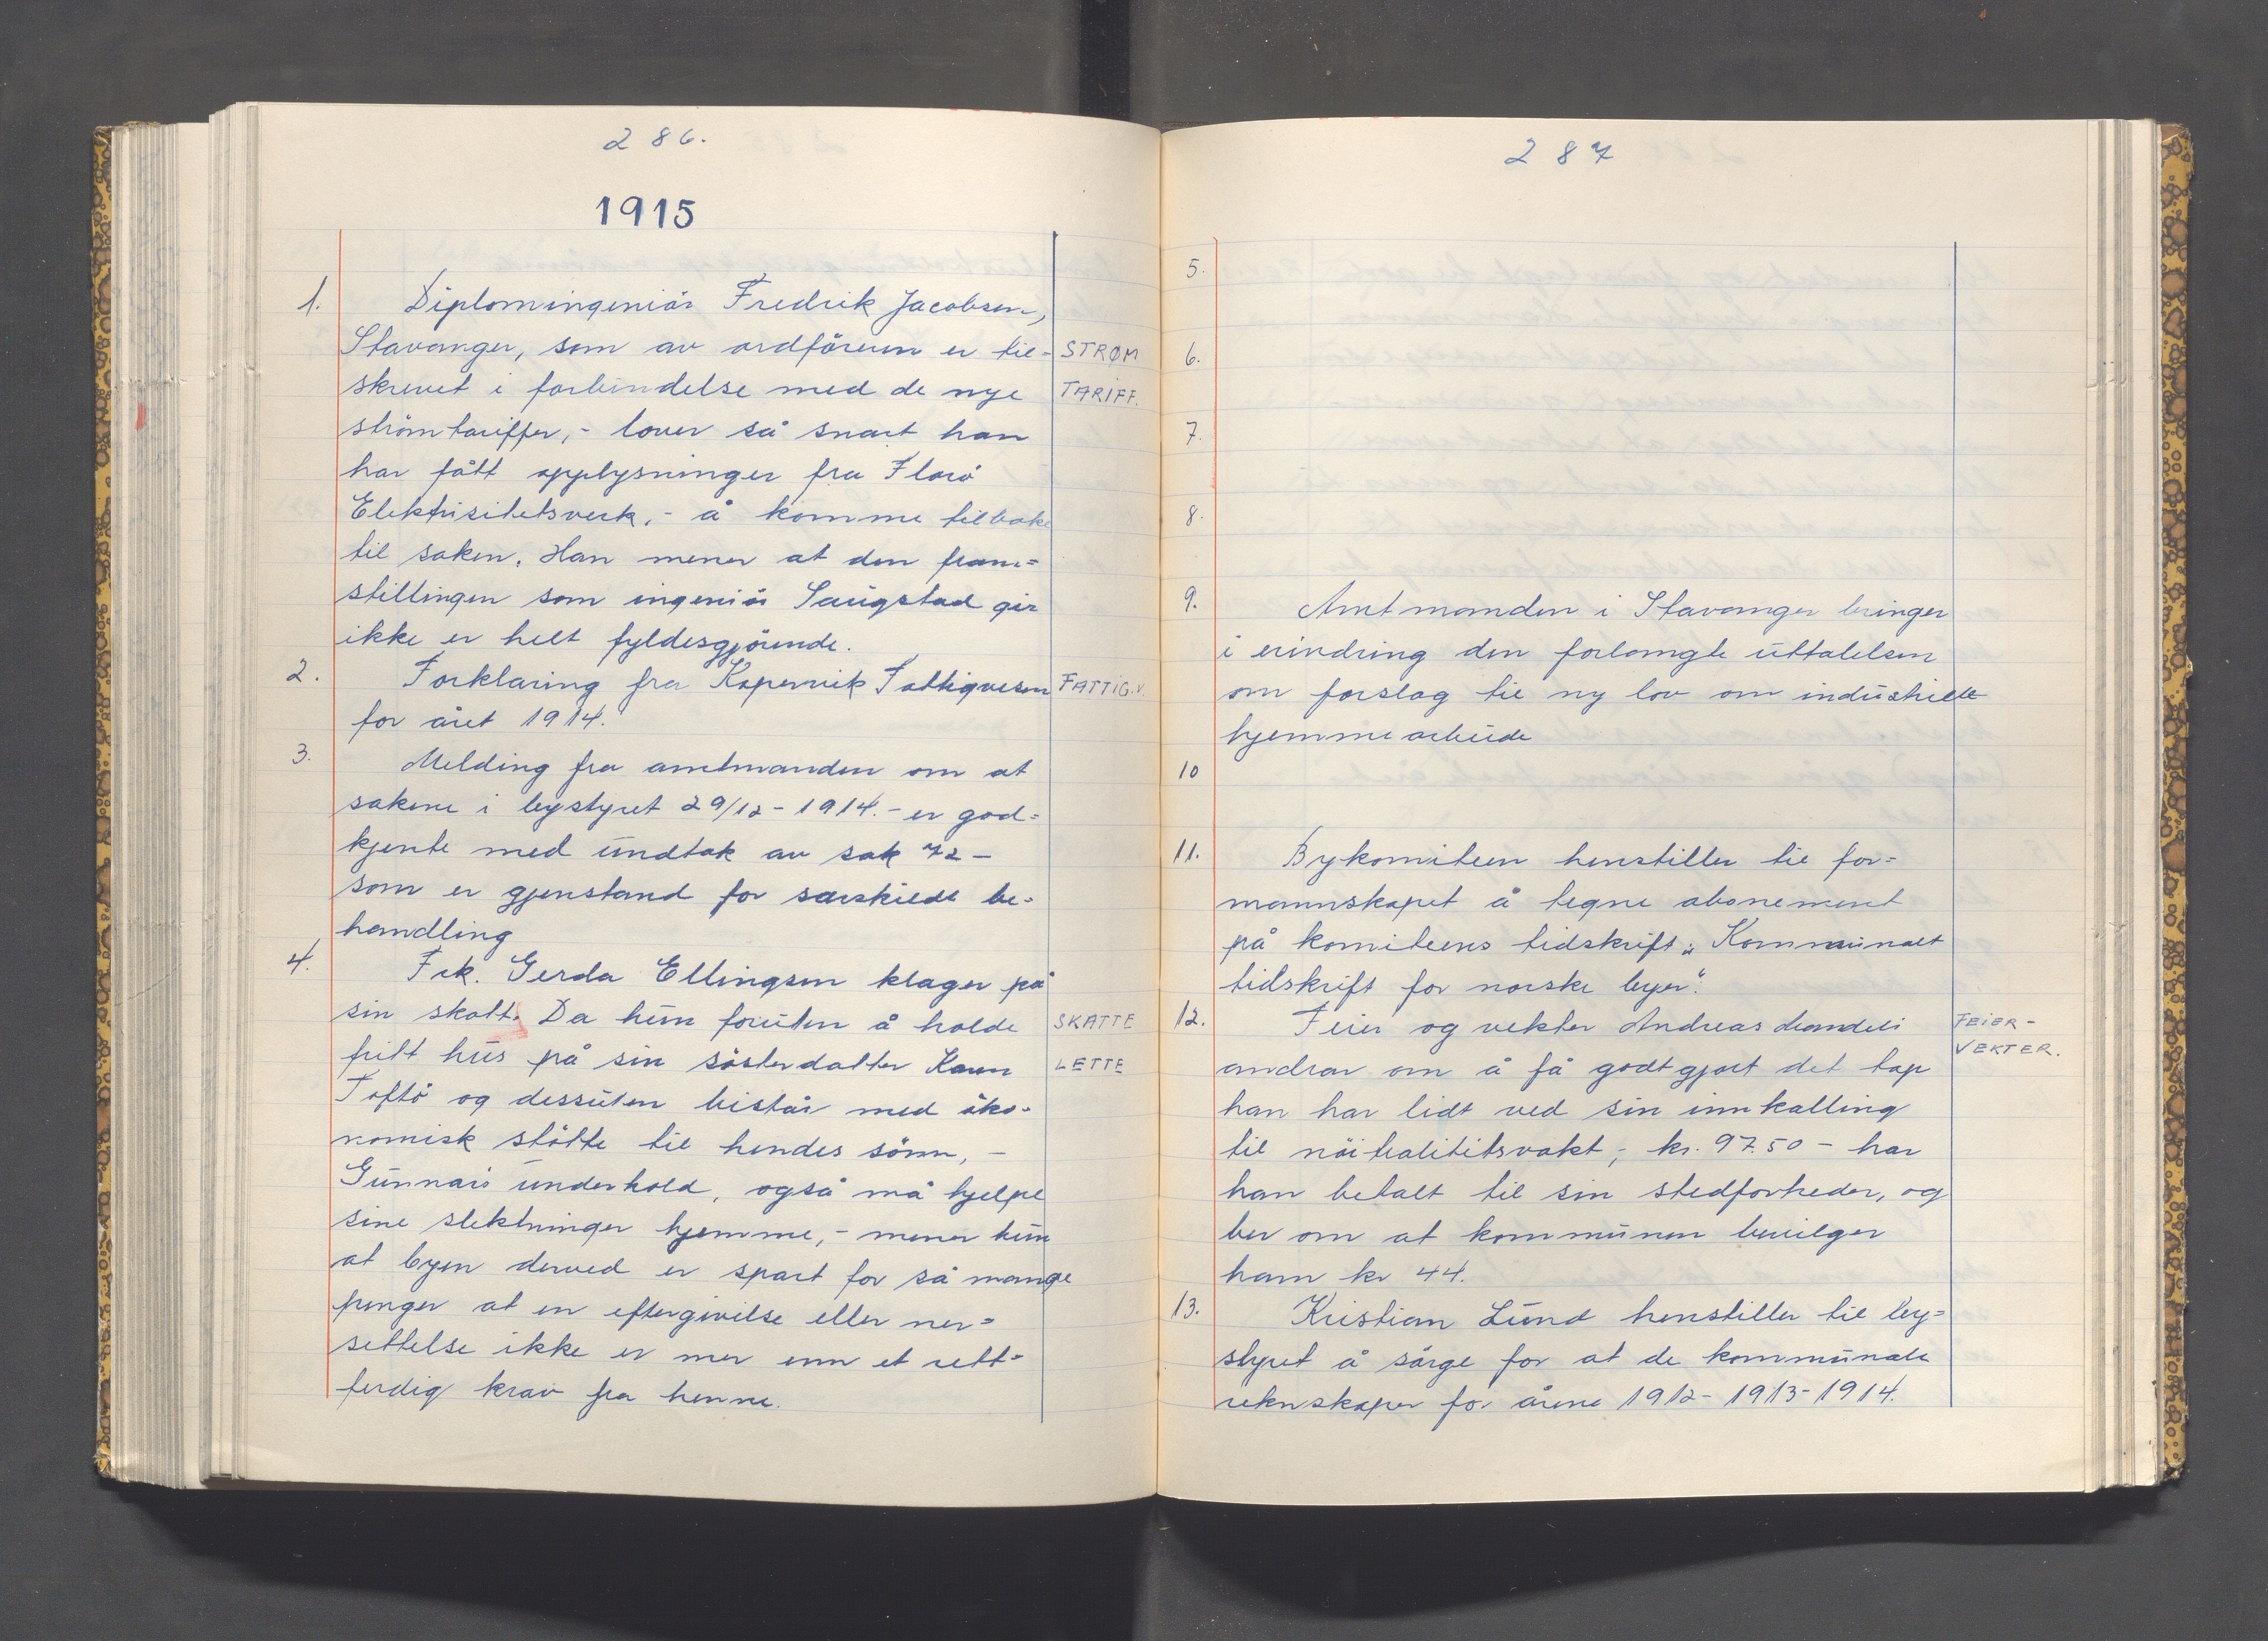 286.
1915
1. Diplomingeniör Fredrik Jacobsen,
Stavanger, som av ordföreren er til- STRØM
skrevet i forbindelse med de nye TARIFF.
strömtariffer,- lover så snart han
har fått opplysninger fra Florö
Elektrisitetsverk,- å komme tilbake
til saken. Han mener at den fram=
stillingen som ingeniör Saugstad gir
ikke er helt fyldesgjörende.
2. Forklaring fra Kopervik Fattigvesen FATTIG.V.
for året 1914.
3. Melding fra amtmanden om at
sakene i bystyret 29/12-1914.- er god=
kjente med undtak av sak 72-
som er gjenstand for særskilt be-
handling
4. Frk. Gerda Ellingsen klager på
sin skatt. Da hun foruten å holde SKATTE
fritt hus på sin sösterdatter Karen LETTE
Toftö og dessuten bistår med öko-
nomisk stötte til hendes sönn, -
Gunnars underhold, også må hjelpe
sine slektninger hjemme,- mener hun
at byen derved er spart for så mange
penger at en eftergivelse eller ner=
settelse ikke er mer enn et rett=
ferdig krav fra henne.
287
5.
6.
7.
8.
9. Amtmanden i Stavanger bringer
i erindring den forlangte uttalelsen
om forslag til ny lov om industrielt
hjemmearbeide
10
11. Bykomiteen henstiller til for=
mannskapet å tegne abonement
på komiteens tidskrift „Kommunalt
tidskrift for norske byer".
12. Feier og vekter Andreas FEIER-
andrar om å få godtgjort det tap VEKTER.
han har lidt ved sin innkalling
til nöitralitetsvakt,- kr. 97.50 - har
han betalt til sin stedfortreder, og
ber om at kommunen bevilger
ham kr 44.
13. Kristian Lund henstiller til by=
styret å sörge for at de kommunale
reknskaper for årene 1912-1913-1914.